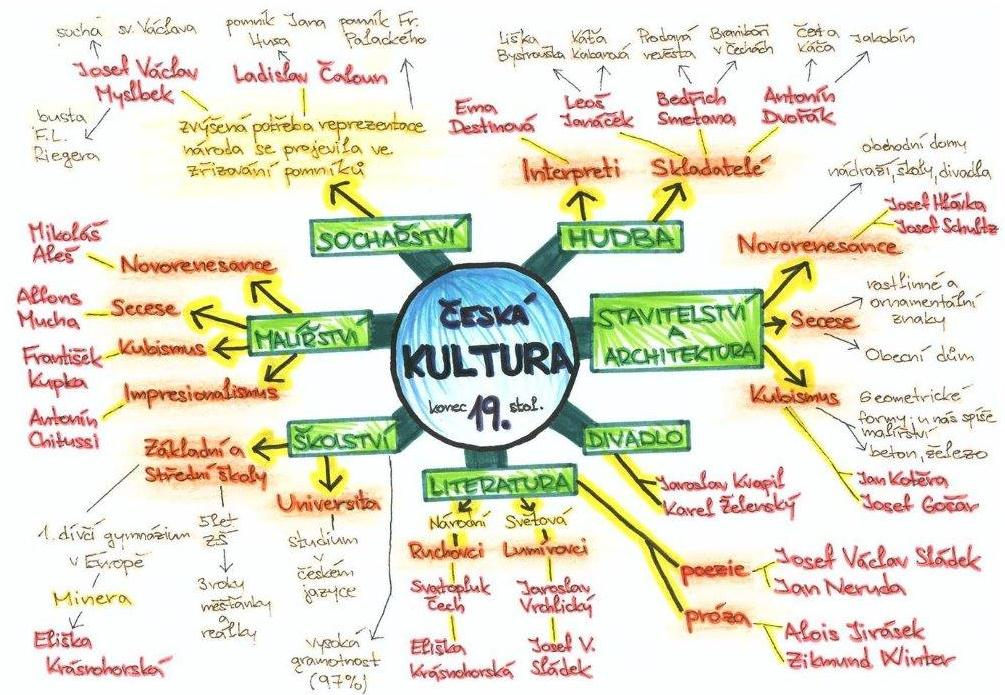 ČESKÁ
KULTURA
konec 19. stol.
SOCHAŘSTVÍ
zvýšená potřeba reprezentace
národa se projevila ve
zřizování pomníků
Josef Václav
Myslbek
socha sv. Václava
busta
F.L.
Riegera
Ladislav Šaloun
pomník Jana
Husa
pomník Fr.
Palackého
HUDBA
Interpreti
Ema
Destinová
Skladatelé
Leoš
Janáček
Liška
Bystrouška
Káťa
Kabanová
Bedřich
Smetana
Prodaná
nevěsta
Braniboři
v Čechách
Antonín
Dvořák
Čert a
Káča
Jakobín
STAVITELSTVÍ
A
ARCHITEKTURA
Novorenesance
obchodní domy
nádraží, školy, divadla
Josef Hlávka
Josef Schultz
Secese
rostlinné a
ornamentální
znaky
Obecní dům
Kubismus
Geometrické
formy; u nás spíše
malířství
beton, železo
Jan Kotěra
Josef Gočár
DIVADLO
Jaroslav Kvapil
Karel Želenský
LITERATURA
Národní
Ruchovci
Svatopluk
Čech
Eliška
Krásnohorská
Světová
Lumírovci
Jaroslav
Vrchlický
Josef V.
Sládek
poezie
Josef Václav Sládek
Jan Neruda
próza
Alois Jirásek
Zikmund Winter
ŠKOLSTVÍ
Základní a
Střední školy
1. dívčí gymnázium
v Evropě
Minera
Eliška
Krásnohorská
5 let
ZŠ
3 roky
měšťanky
a
reálky
Universita
studium
v
českém
jazyce
vysoká
gramotnost
(97%)
MALÍŘSTVÍ
Novorenesance
Mikoláš
Aleš
Secese
Alfons
Mucha
Kubismus
František
Kupka
Impresionalismus
Antonín
Chitussi